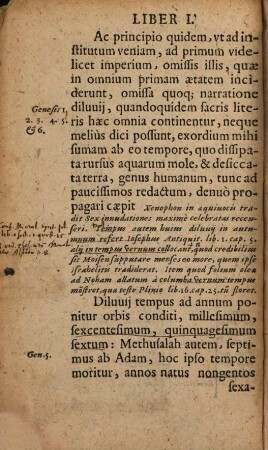 LIBER I.
Ac principio quidem, vt ad in-
stitutum veniam, ad primum vide-
licet imperium, omissis illis, quæ
in omnium primam ætatem inci-
derunt, omissa quoq; narratione
Genesis 1,
2. 3. 4. 5.
& 6.
diluuij, quandoquidem sacris lite-
ris hæc omnia continentur, neque
meliùs dici possunt, exordium mihi
sumam ab eo tempore, quo dissipa-
ta rursus aquarum mole, & desicca-
ta terra, genus humanum, tunc ad
paucissimos redactum, denuò pro-
pagari cœpit Xenophon in æquiuocis tradit
Sex innudationes maximè celebratas recen-
seri. Tempus autem huius diluuij in autu-
mnum refert Iosephus Antiquit. lib. 1. cap. 5.
alij in tempus Vernum collocant, quod credibile sit
sic Moisen supputare menses eo more, quem ipse
Israëlitis tradiderat. Item quod folium oleæ
ad Noham allatum à columba Vernum tempus
mōstret, quo teste Plinio lib. 16. cap. 25. illi floret.
Diluuij tempus ad annum po-
nitur orbis conditi, millesimum,
sexcentesimum, quinquagesimum
Gen. 5.
sextum: Methusalah autem, septi-
mus ab Adam, hoc ipso tempore
moritur, annos natus nongentos
sexa-